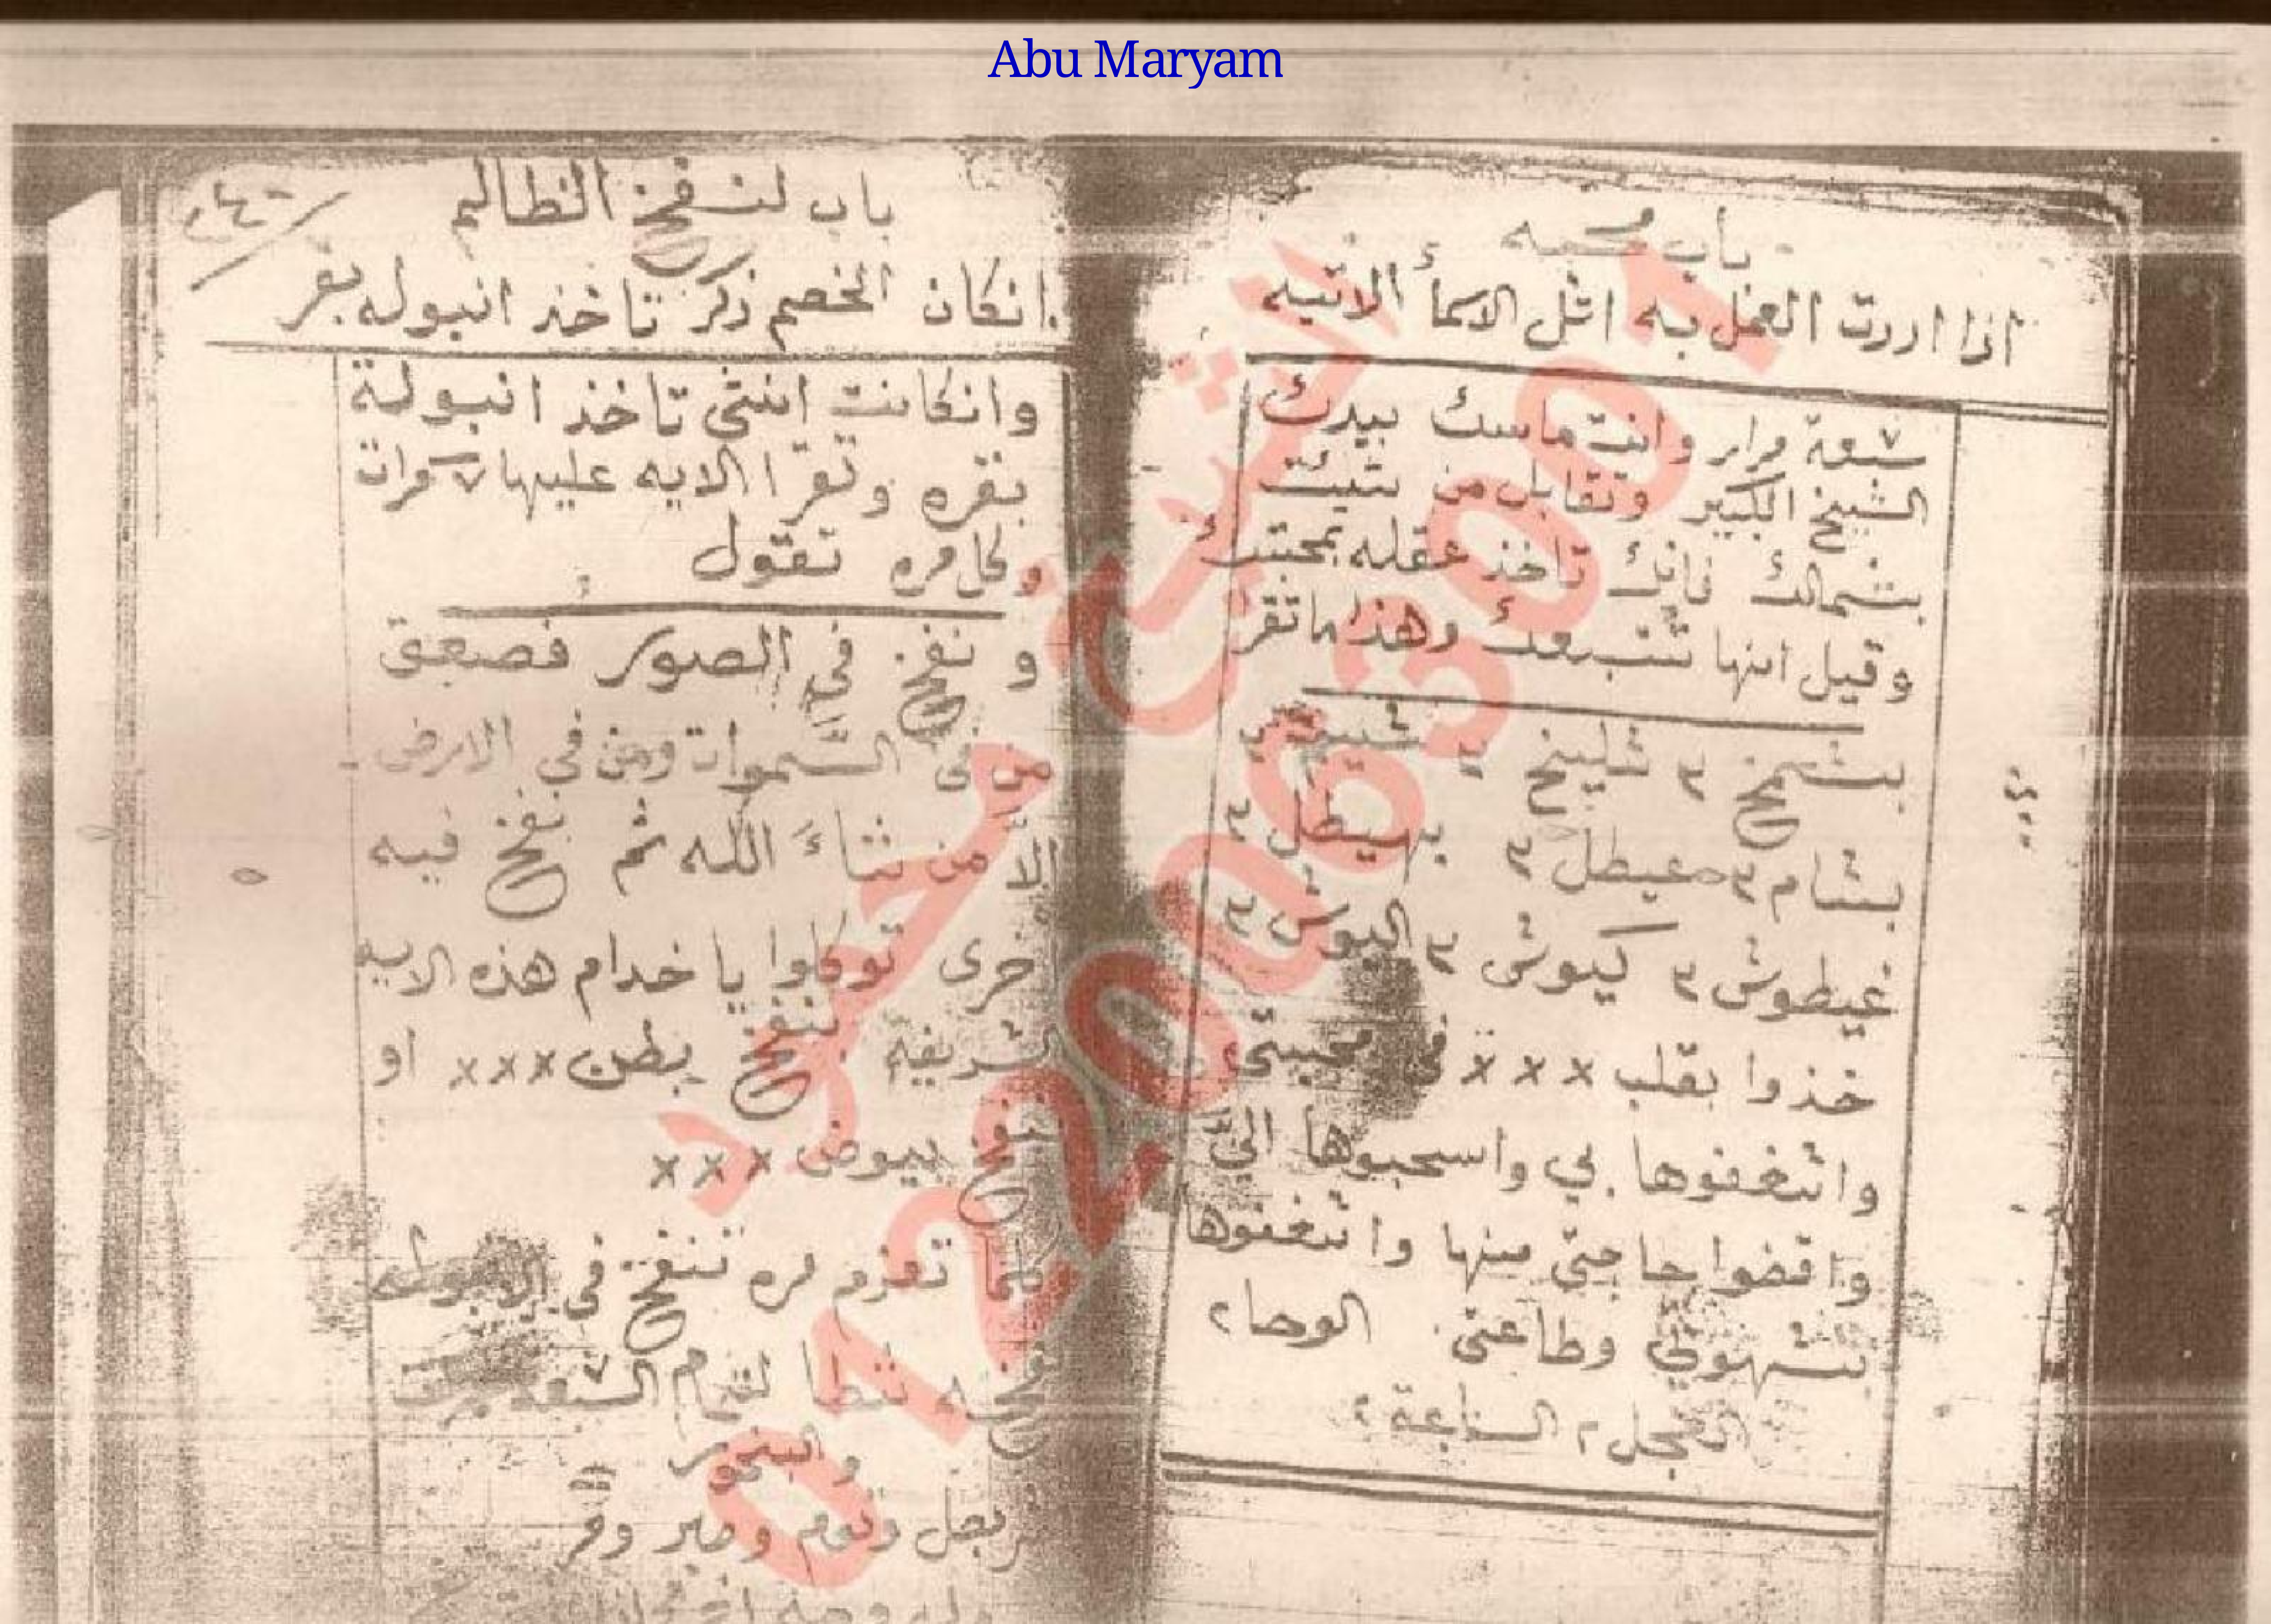 Abu Maryam
باب محبه
اذا اردت العمل به اتل الاسمأ الاتيه
سبعة مرار وانت ماسك بيدك
الشيخ الكبير وتقابل من شيت
بشمالك فانك تاخذ عقله بمحبتك
وقيل انها تتبعك وهذا ما تقر
بشمخ ٢ شليخ ٢
بشام ٢ عيطل ٢ بهيطل ٢
غيطوش ٢ كيوش ٢ اليوش ٢
خذوا بقلب ××× في محبتي
واشغفوها بي واسحبوها اليّ
واقضوا حاجتي منها واشغفوها
بشهوتي وطاعتي الوحا ٢
العجل ٢ الساعة ٢
باب لنفخ الظالم
انكان الخصم ذكر تاخذ انبوله بقر
وانكانت انثى تاخذ انبولة
بقره وتقرا الايه عليها ٧ مرات
وكل مره تقول
و نفخ في الصور فصعق
من في السموات ومن في الارض
الاّ من شاءَ اللّه ثم نفخ فيه
خرى توكلوا يا خدام هذه الايه
الشريفة بنفخ بطن ××× او
بنفخ بيوض ×××
وكلما تعزم مره تنفخ في الانبوله
لتمام السبعه مرات
والبخور
بصل وثوم وصبر ومر
الشيخ محمد
01220063001